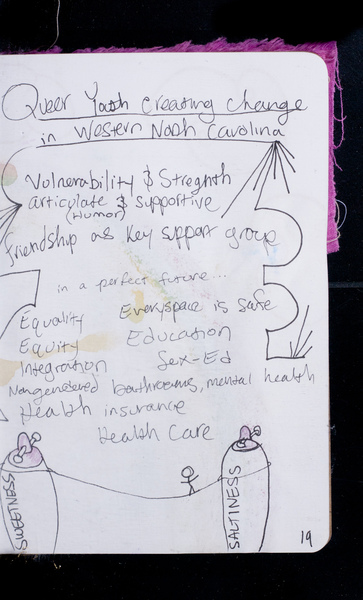 Queer Youth Creating Change
in Western North Carolina
Volnerability & Stregnth
articulate & supportive
(Humor)
friendship as key support group
in a perfect future...
Equality Everyspace is safe
Equity Education
Integration Sex-Ed
Nongendered bathrooms, mental health
Health insurance
Health Care
SWEETNESS
SALTINESS
19